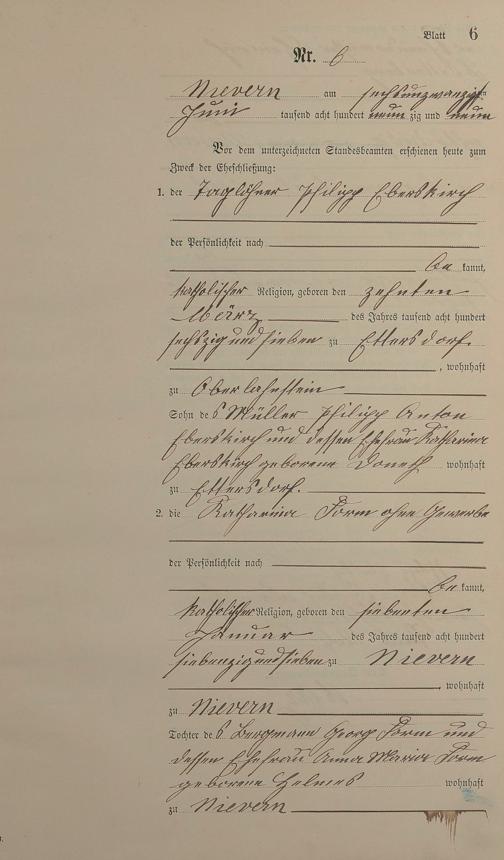 Blatt 6
Nr. 6
Nievern am sechsundzwanzigsten
Juni tausend acht hundert neunzig und neun
Vor dem unterzeichneten Standesbeamten erschienen heute zum
Zweck der Eheschließung:
1. der Taglöhner Philipp Eberskirch
der Persönlichkeit nach
be kannt,
katholischer Religion, geboren den zehnten
März des Jahres tausend acht hundert
sechszig und sieben zu Ettersdorf
, wohnhaft
zu Oberlahnstein
Sohn des Müller Philipp Anton
Eberskirch und dessen Ehefrau Katharina
Eberskirch geborene Doneth wohnhaft
zu Ettersdorf.
2. die Katharina Form ohne Gewerbe
der Persönlichkeit nach
be kannt,
katholischer Religion, geboren den siebenten
Januar des Jahres tausend acht hundert
siebenzig und sieben zu Nievern
, wohnhaft
zu Nievern
Tochter des Bergmann Georg Form und
dessen Ehefrau Anna Maria Form
geborene Helmes wohnhaft
zu Nievern